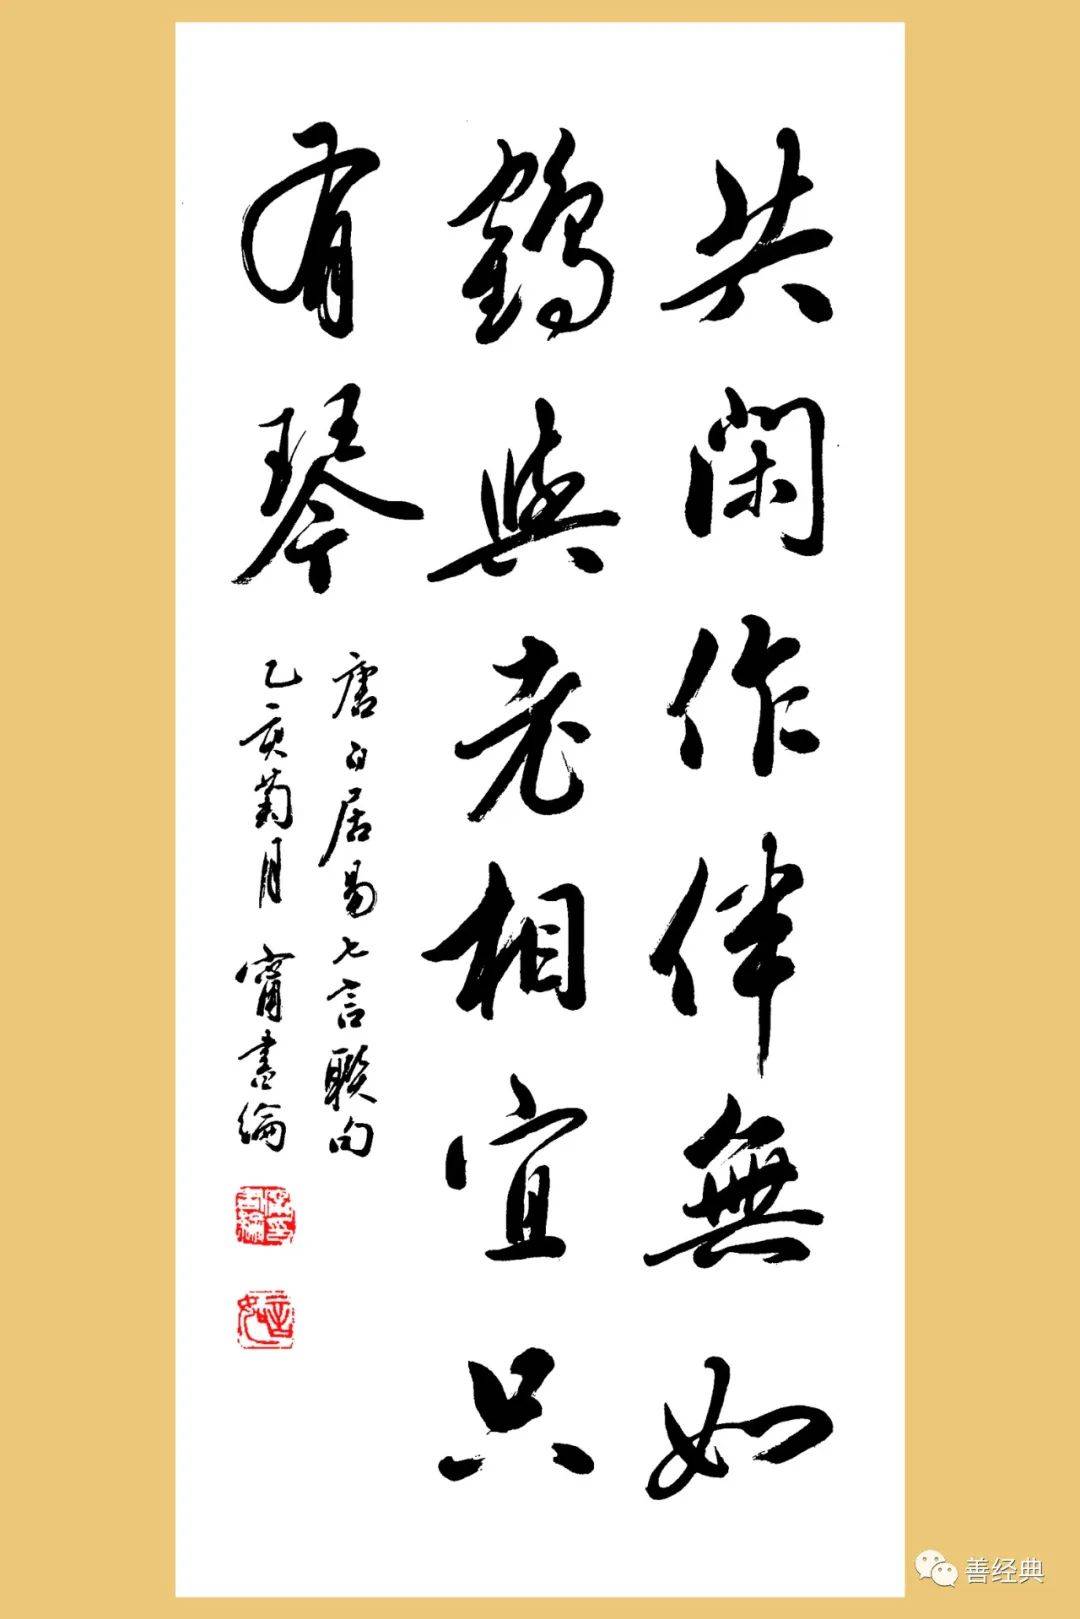 共閑作伴無如
鶴與老相宜只
有琴
唐白居易七言联句
乙亥菊月 甯書綸
善经典